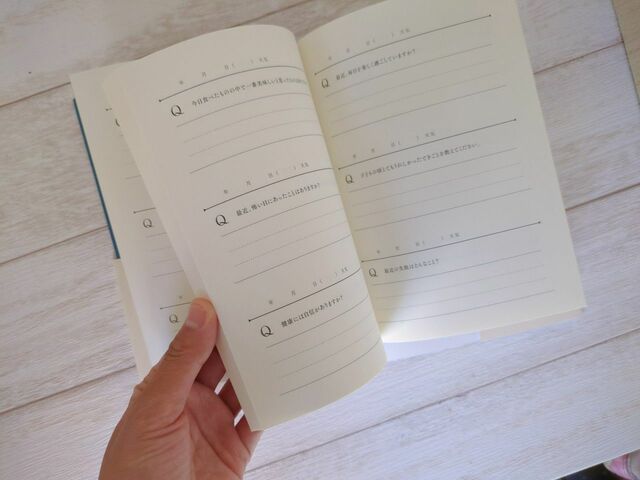 年 月 日( ) 天気
Q 今日食べたものの中で一番美味しいと思ったものは
年 月 日( ) 天気
Q 最近、怖い目にあったことはありますか?
年 月 日( ) 天気
Q 健康には自信がありますか?
年 月 日( ) 天気
Q 最近、毎日が楽しく過ごしていますか?
年 月 日( ) 天気
Q 子どもの頃とてもうれしかったできごとを教えてください。
年 月 日( ) 天気
Q 最近の失敗はどんなこと?
Q
Q
Q